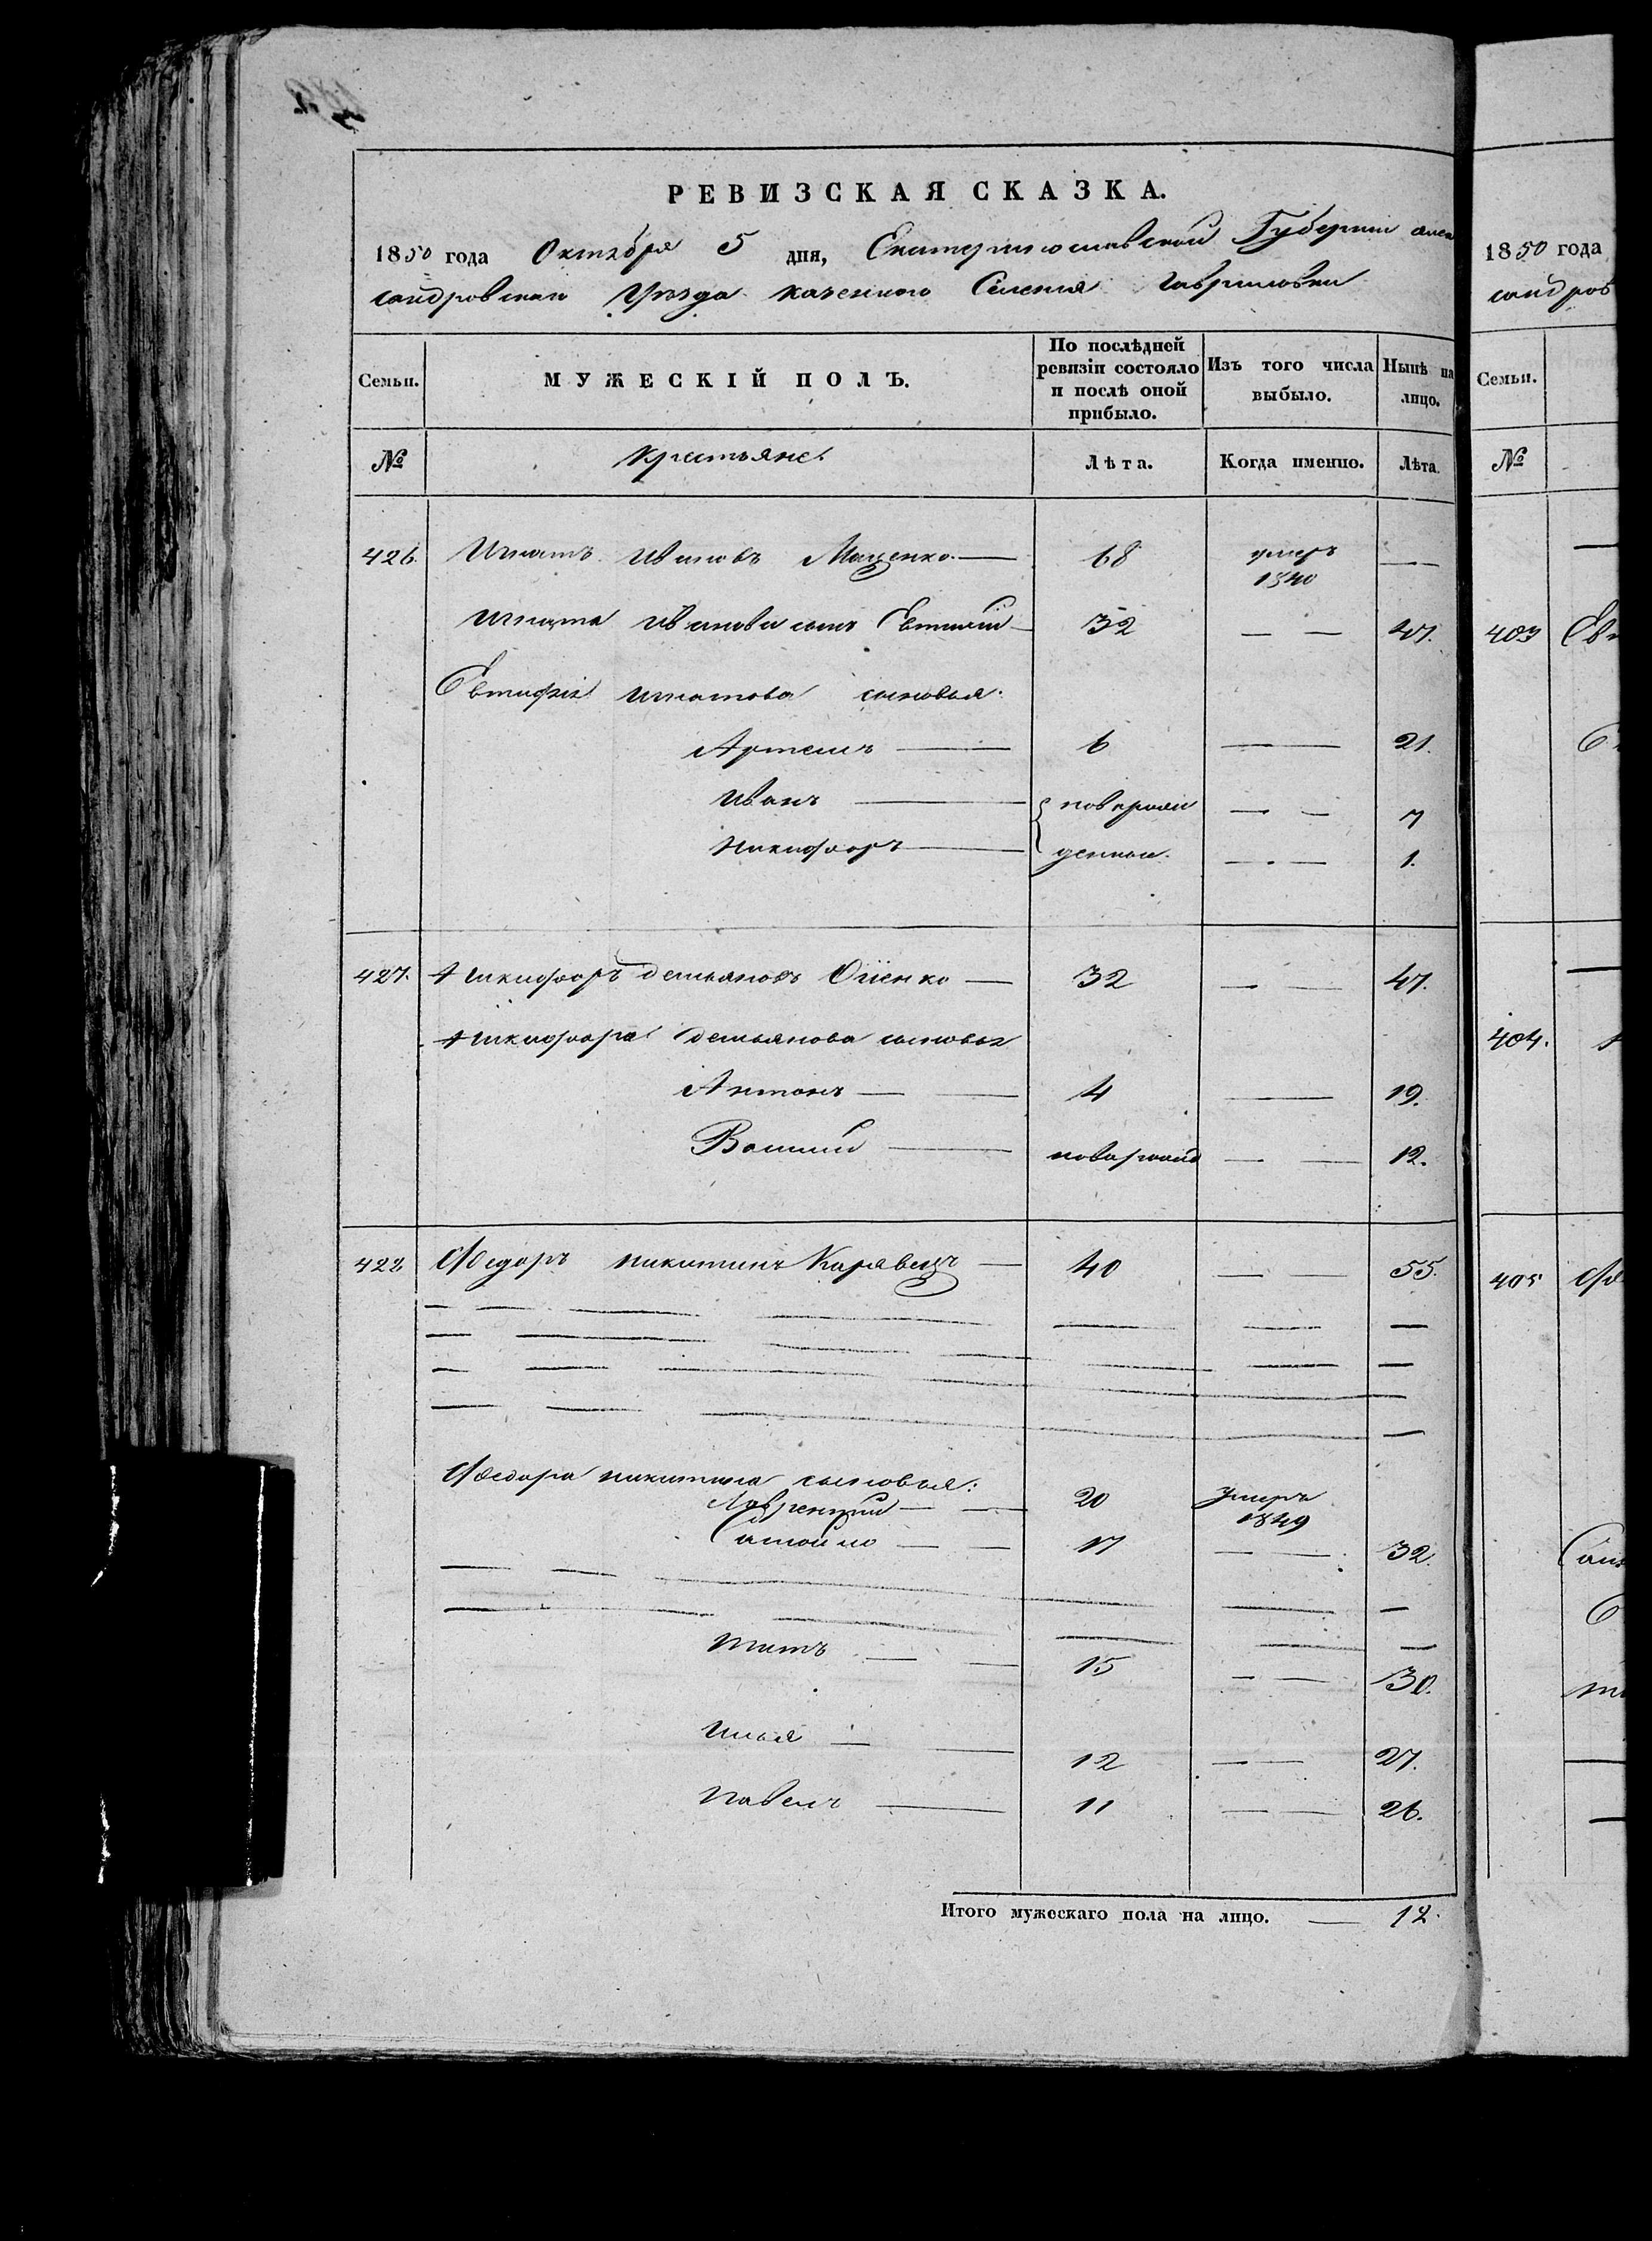 РЕВИЗСКАЯ СКАЗКА.
1850 года Октября 5 дня, Екатеринославской Губернии алек
сандровскаго уѣзда казеннаго Селенія Гавриловки
Семьи.
МУЖЕСКІЙ ПОЛЪ.
По послѣдней ревизіи состояло и послѣ оной прибыло.
Изъ того числа выбыло.
Нынѣ на лицо.
№ Крестьяне Лѣта. Когда именно. Лѣта.
426. Игнатъ Ивановъ Маценко — 68 умеръ 1840 —
Игната Иванова сынъ Евтифій — 32 — — 47.
Евтифія Игнатова сыновья:
Артемъ — 6 — 21.
Иванъ — новорож — — 7
Никифоръ — денные. — — 1.
427. Никифоръ Демьяновъ — 32 — — 47.
Никифора Демьянова сыновья
Антонъ — — 4 — 19.
Василий — новорожд — — 12.
428 Федоръ Никитинъ Коровецъ — 40 — — 55.
Федора Никитина сыновья:
Лаврентий — — 20 умеръ 1849
Самойло — — 17 — — 32.
Титъ — — 15 — — 30.
Илья — — 12 — — 27.
Павелъ — 11 — — 26.
Итого мужескаго пола на лицо. — 12.
1850 года
сандров
Семьи.
№
403 Ев
404.
405